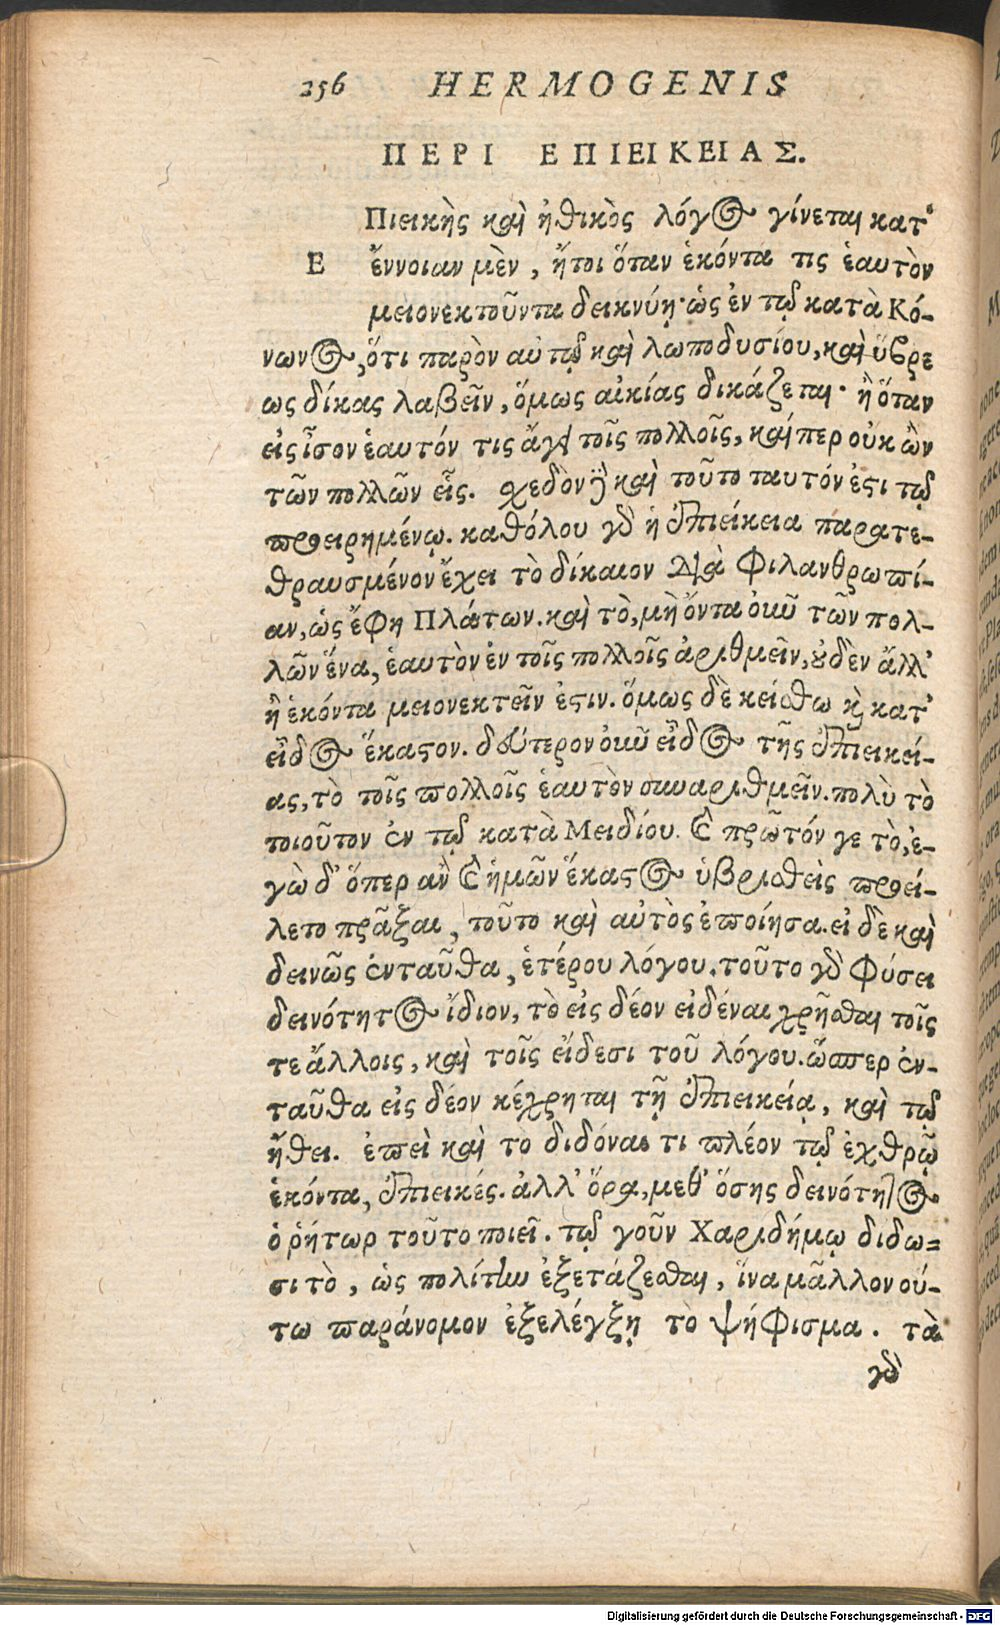 256 HERMOGENIS
ΠΕΡΙ ΕΠΙΕΙΚΕΙΑΣ.
Πιεικὴς καὶ ἠθικὸς λόγος γίνεται κατ'
Ε ἔννοιαν μὲν, ἤτοι ὅταν ἑκόντα τις ἑαυτὸν
μειονεκτοῦντα δεικνύῃ· ὡς ἐν τῷ κατὰ Κό-
νωνος, ὅτι παρὸν αὐτῷ καὶ λωποδυσίου, καὶ ὕβρε
ως δίκας λαβεῖν, ὅμως αἰκίας δικάζεται· ἢ ὅταν
εἰς ἶσον ἑαυτόν τις ἄγῃ τοῖς πολλοῖς, καίπερ οὐκ ὢν
τῶν πολλῶν εἷς. σχεδὸν ᾖ καὶ τοῦτο ταυτόν ἐστι τῷ
προειρημένῳ. καθόλου γὰρ ἡ ἐπιείκεια παρατε-
θραυσμένον ἔχει τὸ δίκαιον διὰ φιλανθρωπί-
αν, ὡς ἔφη Πλάτων. καὶ τὸ, μὴ ὄντα οὖν τῶν πολ-
λῶν ἕνα, ἑαυτὸν ἐν τοῖς πολλοῖς ἀριθμεῖν, οὐδὲν ἄλλ'
ἢ ἑκόντα μειονεκτεῖν ἐστιν. ὅμως δὲ κείσθω καὶ κατ'
εἶδος ἕκαστον. δεύτερον οὖν εἶδος τῆς ἐπιεικεί-
ας, τὸ τοῖς πολλοῖς ἑαυτὸν συναριθμεῖν. πολὺ τὸ
τοιοῦτον ἐν τῷ κατὰ Μειδίου. καὶ πρῶτόν γε τὸ, ἐ-
γὼ δ' ὅπερ ἂν καὶ ἡμῶν ἕκαστος ὑβρισθεὶς προεί-
λετο πρᾶξαι, τοῦτο καὶ αὐτὸς ἐποίησα. εἰ δὲ καὶ
δεινῶς ἐνταῦθα, ἑτέρου λόγου. τοῦτο γὰρ φύσει
δεινότητος ἴδιον, τὸ εἰς δέον εἰδέναι χρῆσθαι τοῖς
τε ἄλλοις, καὶ τοῖς εἴδεσι τοῦ λόγου. ὥσπερ ἐν-
ταῦθα εἰς δέον κέχρηται τῇ ἐπιεικείᾳ, καὶ τῷ
ἤθει. ἐπεὶ καὶ τὸ διδόναι τι πλέον τῷ ἐχθρῷ
ἑκόντα, ἐπιεικές. ἀλλ' ὅρα, μεθ' ὅσης δεινότητος
ὁ ῥήτωρ τοῦτο ποιεῖ. τῷ γοῦν Χαριδήμῳ δίδω-
σι τὸ, ὡς πολίτην ἐξετάζεσθαι, ἵνα μᾶλλον οὕ-
τω παράνομον ἐξελέγξῃ τὸ ψήφισμα. τὰ
γὰρ
Digitalisierung gefördert durch die Deutsche Forschungsgemeinschaft - DFG